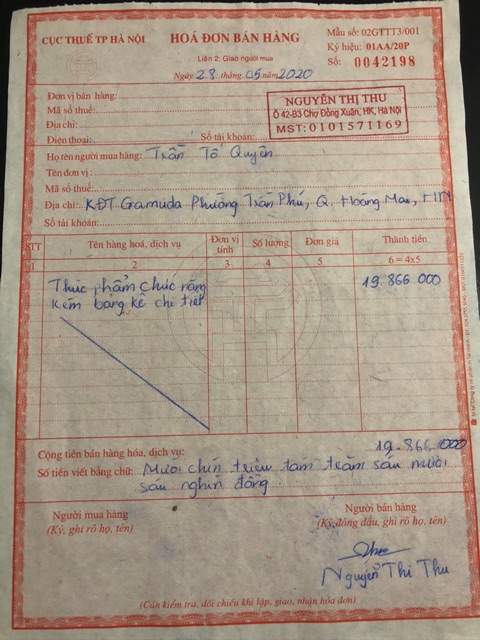 CỤC THUẾ TP HÀ NỘI
HOÁ ĐƠN BÁN HÀNG
Mẫu số: 02GTTT3/001
Liên 2: Giao người mua
Ký hiệu: 01AA/20P
Ngày 28 tháng 05 năm 2020
Số: 0042198
Đơn vị bán hàng:
Mã số thuế:
Địa chỉ:
Điện thoại: Số tài khoản:
NGUYỄN THỊ THU
Ô 42-B3 Chợ Đồng Xuân, HK, Hà Nội
MST: 0101571169
Họ tên người mua hàng: Trần Tố Quyên
Tên đơn vị:
Mã số thuế:
Địa chỉ: KĐT Gamuda Phường Trần Phú, Q. Hoàng Mai, HN
Số tài khoản:
STT Tên hàng hoá, dịch vụ Đơn vị tính Số lượng Đơn giá Thành tiền
1 2 3 4 5 6 = 4x5
Thực phẩm chức năng 19.866.000
kèm bảng kê chi tiết
Cộng tiền bán hàng hóa, dịch vụ: 19.866.000
Số tiền viết bằng chữ: Mười chín triệu tám trăm sáu mươi
sáu nghìn đồng
Người mua hàng Người bán hàng
(Ký, ghi rõ họ, tên) (Ký, đóng dấu, ghi rõ họ, tên)
Nguyễn Thị Thu
(Cần kiểm tra, đối chiếu khi lập, giao, nhận hóa đơn)